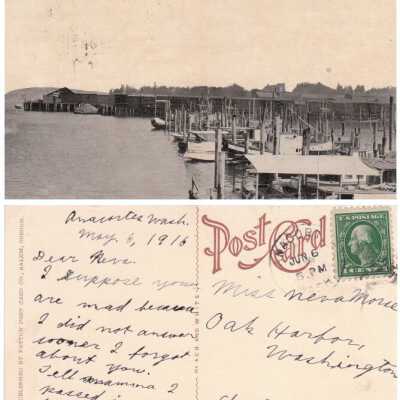 Anacortes Wash.
May 6, 1916
Dear Neva.
I suppose you
are mad because
I did not answer
sooner I forgot
about you.
Tell mamma I
passed
PUBLISHED BY PATTON POST CARD CO., SALEM, OREGON.
BLACK AND WHITE
Post Card
JUN 6
5 PM
U.S. POSTAGE
1 CENT 1
Miss Neva Morse
Oak Harbor,
Washington